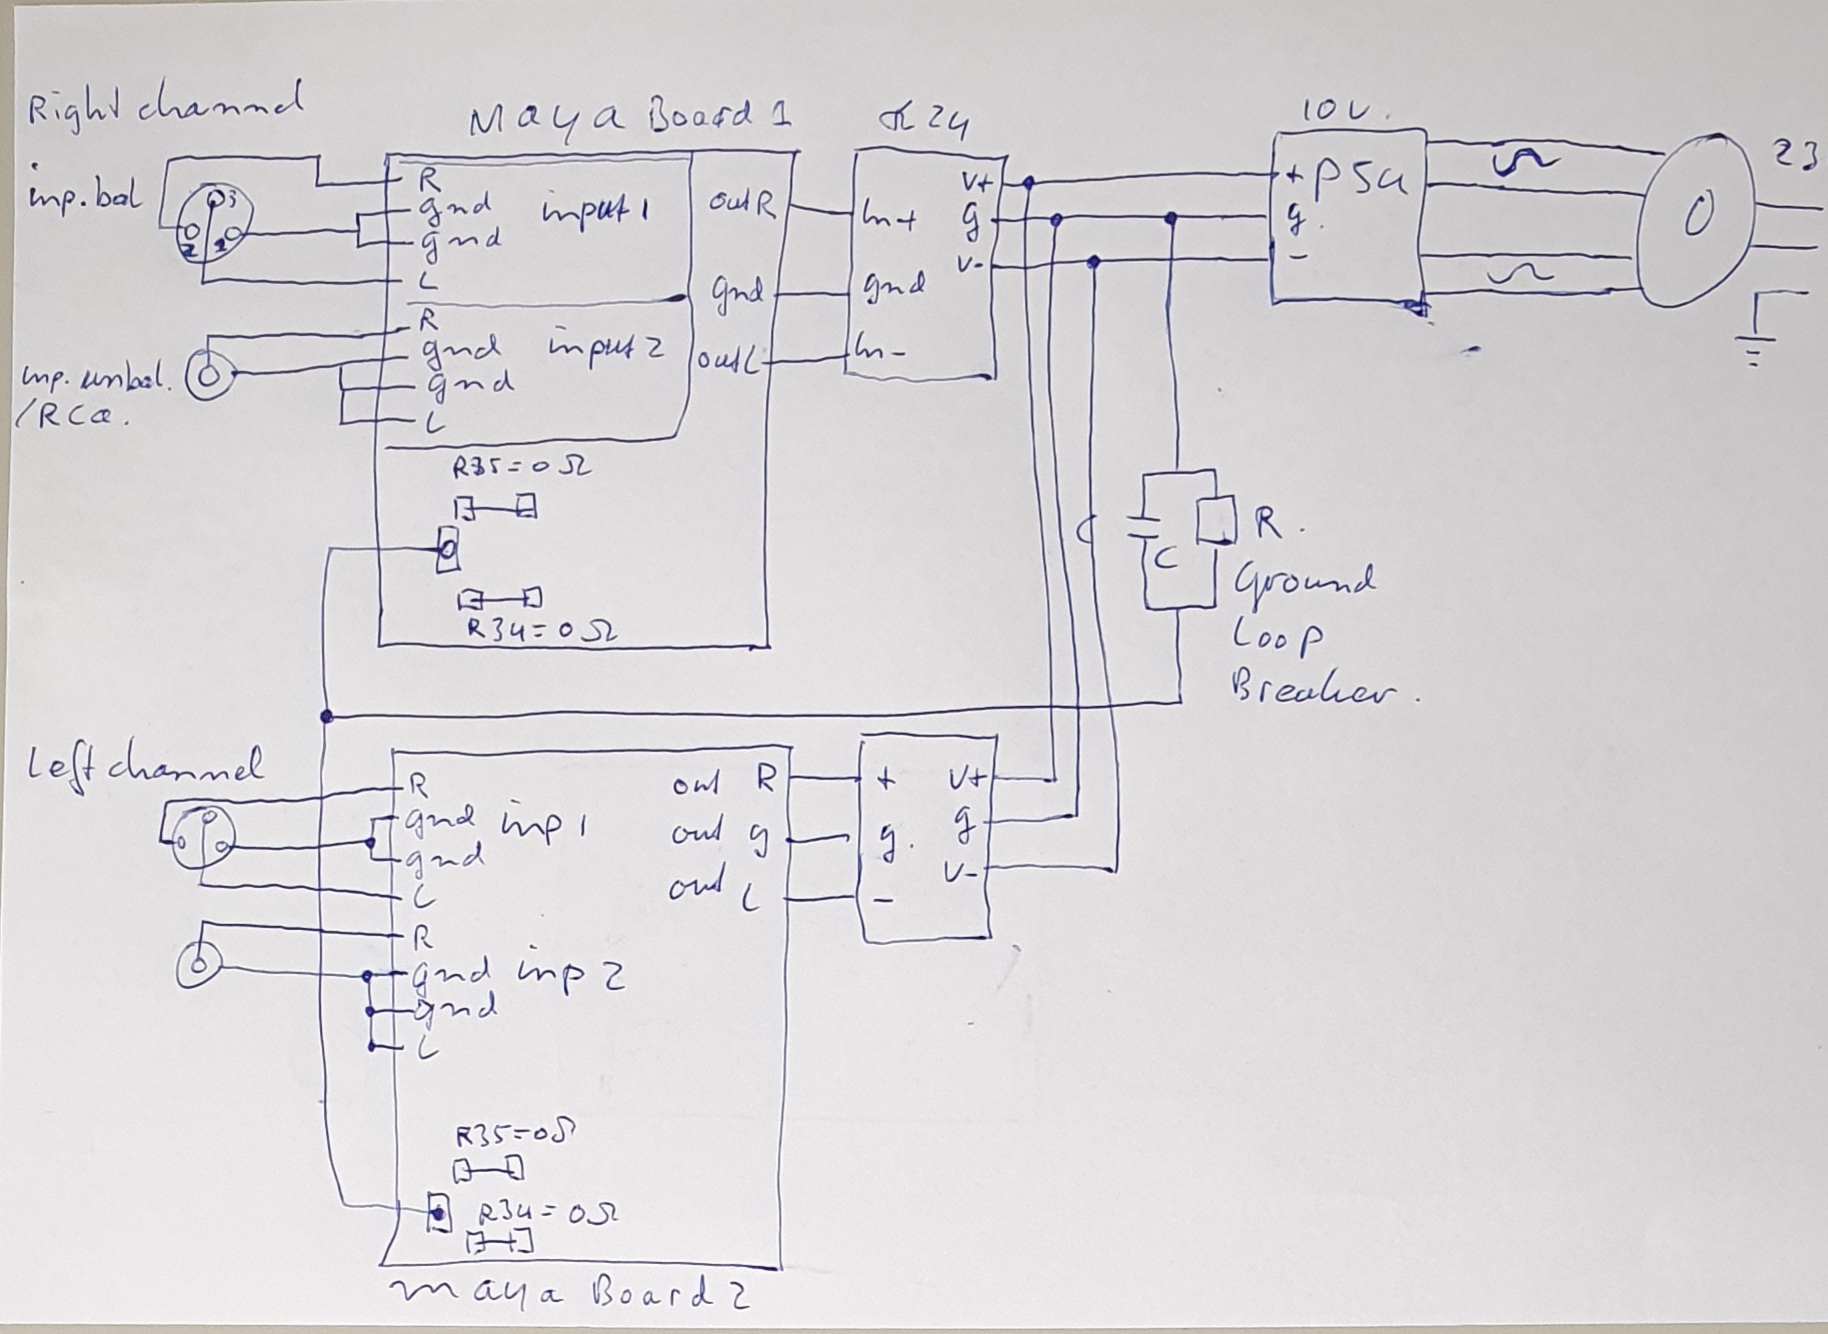 Right channel
Maya Board 1
α24
10V.
23
inp. bal
3
2
1
R
gnd
gnd
L
input 1
out R
Gnd
out L
In+
gnd
In-
V+
g
V-
+ PSU
g.
-
0
R
gnd
gnd
L
input 2
inp. unbal.
/RCA.
R35=0Ω
R34=0Ω
C
R.
Ground
Loop
Breaker.
Left channel
R
gnd
gnd
L
inp 1
R
gnd
gnd
L
inp 2
out R
out g
out L
+
g.
-
V+
g
V-
R35=0Ω
R34=0Ω
Maya Board 2